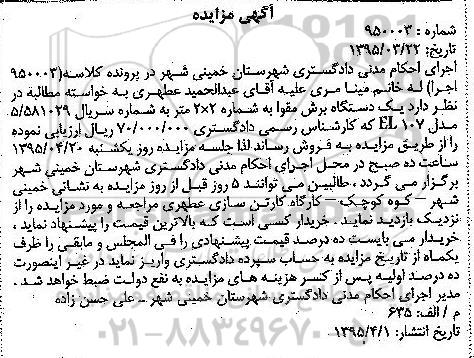 آگهی مزایده
شماره : ۹۵۰۰۰۳
تاریخ: ۱۳۹۵/۰۳/۲۲
اجرای احکام مدنی دادگستری شهرستان خمینی شهر در پرونده کلاسه(۹۵۰۰۰۳
اجرا) له خانم مینا مری علیه آقای عبدالحمید عطهری به خواسته مطالبه در
نظر دارد یک دستگاه برش مقوا به شماره ۲×۲ متر به شماره سریال ۵/۵۸۱۰۲۹
مدل EL ۱۰۷ که کارشناس رسمی دادگستری ۷۰/۰۰۰/۰۰۰ ریال ارزیابی نموده
را از طریق مزایده به فروش رساند لذا جلسه مزایده روز یکشنبه ۱۳۹۵/۰۴/۲۰
ساعت ده صبح در محل اجرای احکام مدنی دادگستری شهرستان خمینی شهر
برگزار می گردد ، طالبین می توانند ۵ روز قبل از روز مزایده به نشانی خمینی
شهر – کوه کوچک – کارگاه کارتن سازی عطهری مراجعه و مورد مزایده را از
نزدیک بازدید نمایند . خریدار کسی است که بالاترین قیمت را پیشنهاد نماید ،
خریدار می بایست ده درصد قیمت پیشنهادی را فی المجلس و مابقی را ظرف
یکماه از تاریخ مزایده به حساب سپرده دادگستری واریز نماید در غیر اینصورت
ده درصد اولیه پس از کسر هزینه های مزایده به نفع دولت ضبط خواهد شد .
مدیر اجرای احکام مدنی دادگستری شهرستان خمینی شهر - علی حسن زاده
م / الف: ۶۳۵
تاریخ انتشار: ۱۳۹۵/۴/۱
۰۲۱-۸۸۳۴۹۶۷۰